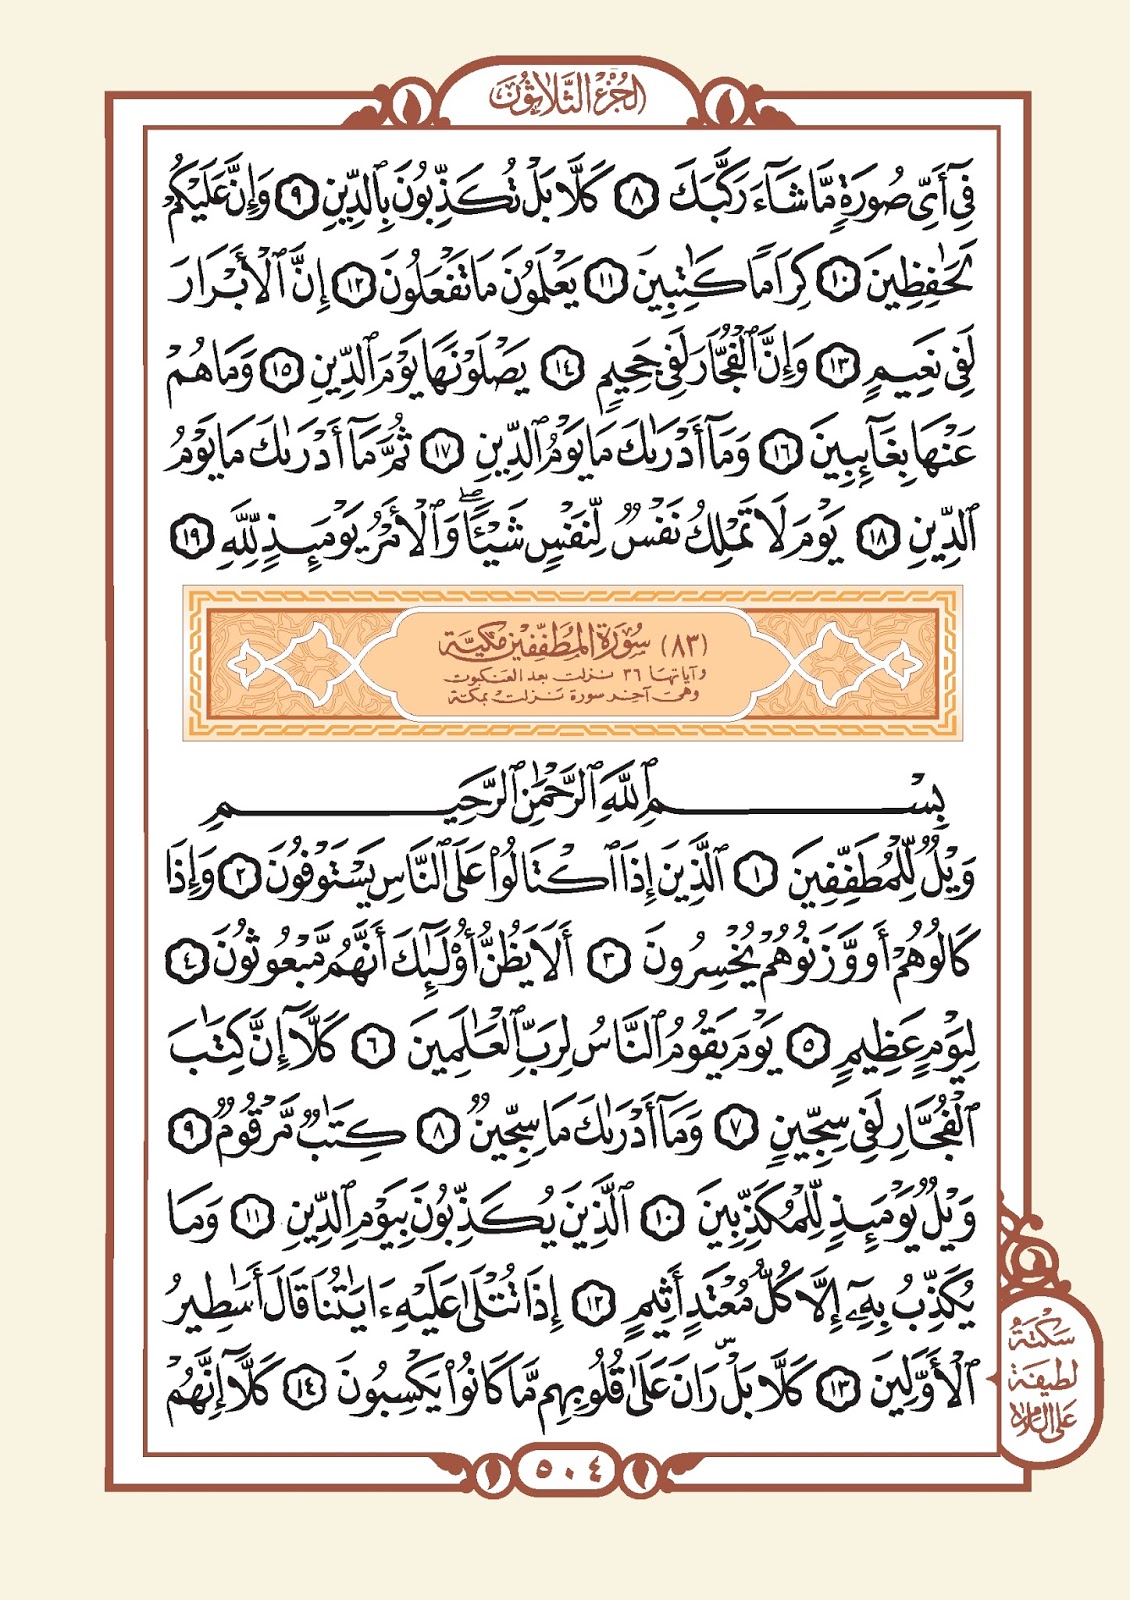 الجُزْءُ الثَّلَاثُونَ
فِىٓ أَىِّ صُورَةٍ مَّا شَآءَ رَكَّبَكَ ٨ كَلَّا بَلْ تُكَذِّبُونَ بِٱلدِّينِ ٩ وَإِنَّ عَلَيْكُمْ
لَحَٰفِظِينَ ١٠ كِرَامًا كَٰتِبِينَ ١١ يَعْلَمُونَ مَا تَفْعَلُونَ ١٢ إِنَّ ٱلْأَبْرَارَ
لَفِى نَعِيمٍ ١٣ وَإِنَّ ٱلْفُجَّارَ لَفِى جَحِيمٍ ١٤ يَصْلَوْنَهَا يَوْمَ ٱلدِّينِ ١٥ وَمَا هُمْ
عَنْهَا بِغَآئِبِينَ ١٦ وَمَآ أَدْرَىٰكَ مَا يَوْمُ ٱلدِّينِ ١٧ ثُمَّ مَآ أَدْرَىٰكَ مَا يَوْمُ
ٱلدِّينِ ١٨ يَوْمَ لَا تَمْلِكُ نَفْسٌ لِّنَفْسٍ شَيْـًٔا ۖ وَٱلْأَمْرُ يَوْمَئِذٍ لِّلَّهِ ١٩
(٨٣) سُورَةُ المُطَفِّفِينَ مَكِّيَّة
وآياتها ٣٦ نزلت بعد العنكبوت
وهى آخر سورة نزلت بمكة
بِسْمِ ٱللَّهِ ٱلرَّحْمَٰنِ ٱلرَّحِيمِ
وَيْلٌ لِّلْمُطَفِّفِينَ ١ ٱلَّذِينَ إِذَا ٱكْتَالُوا۟ عَلَى ٱلنَّاسِ يَسْتَوْفُونَ ٢ وَإِذَا
كَالُوهُمْ أَو وَّزَنُوهُمْ يُخْسِرُونَ ٣ أَلَا يَظُنُّ أُو۟لَٰٓئِكَ أَنَّهُم مَّبْعُوثُونَ ٤
لِيَوْمٍ عَظِيمٍ ٥ يَوْمَ يَقُومُ ٱلنَّاسُ لِرَبِّ ٱلْعَٰلَمِينَ ٦ كَلَّآ إِنَّ كِتَٰبَ
ٱلْفُجَّارِ لَفِى سِجِّينٍ ٧ وَمَآ أَدْرَىٰكَ مَا سِجِّينٌ ٨ كِتَٰبٌ مَّرْقُومٌ ٩
وَيْلٌ يَوْمَئِذٍ لِّلْمُكَذِّبِينَ ١٠ ٱلَّذِينَ يُكَذِّبُونَ بِيَوْمِ ٱلدِّينِ ١١ وَمَا
يُكَذِّبُ بِهِۦٓ إِلَّا كُلُّ مُعْتَدٍ أَثِيمٍ ١٢ إِذَا تُتْلَىٰ عَلَيْهِ ءَايَٰتُنَا قَالَ أَسَٰطِيرُ
ٱلْأَوَّلِينَ ١٣ كَلَّا بَلْ ۜ رَانَ عَلَىٰ قُلُوبِهِم مَّا كَانُوا۟ يَكْسِبُونَ ١٤ كَلَّآ إِنَّهُمْ
سَكْتَةٌ
لطيفة
على اللام
٥٠٤